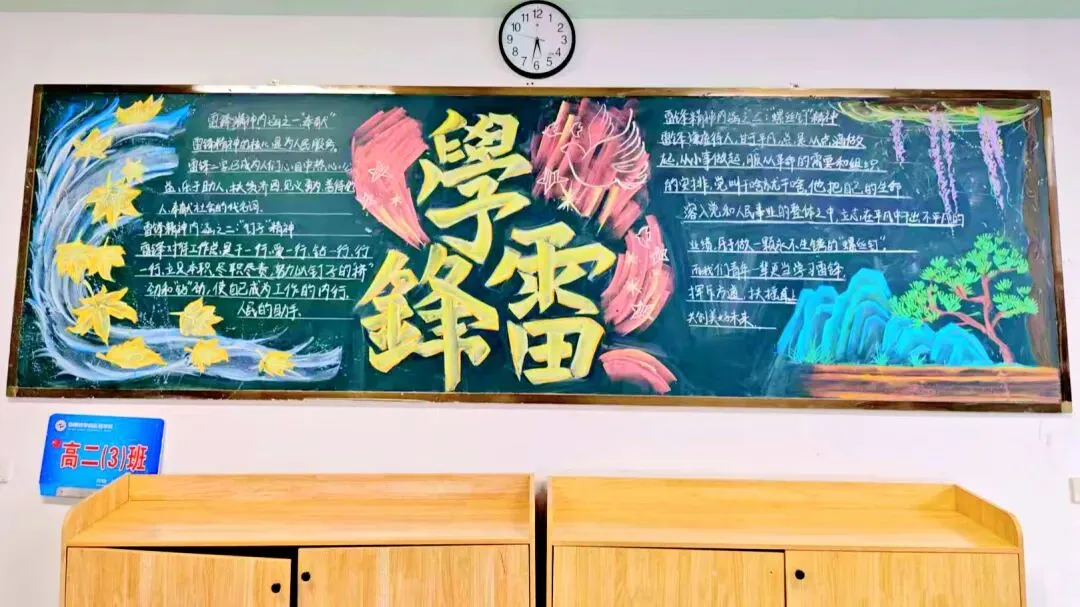 雷锋精神内涵之一"奉献"
雷锋精神的核心是为人民服务。
雷锋二字已成为人们心目中热心公
益、乐于助人、扶贫济困、见义勇为、善待他
人、奉献社会的代名词。
雷锋精神内涵之二:"钉子"精神
雷锋对本职工作总是干一行、爱一行、钻一行、
一行,立足本职、尽职尽责,努力以钉子的挤"
劲和"钻"劲,使自己成为工作的内行,
人民的助手。
學
鋒
雷
雷锋精神内涵之三:"螺丝钉"精神
雷锋谦虚待人,对于平凡,总是从点滴做
起,从小事做起,服从革命的需要和组织
的安排,党叫干啥就干啥,他把自己的生命
溶入党和人民事业的整体之中,立志在平凡中干出不平凡的
业绩,甘于做一颗永不生锈的"螺丝钉"
而我们青年一辈更当学习雷锋
共创美好未来
12
1
2
3
4
5
6
7
8
9
10
11
高二(3)班